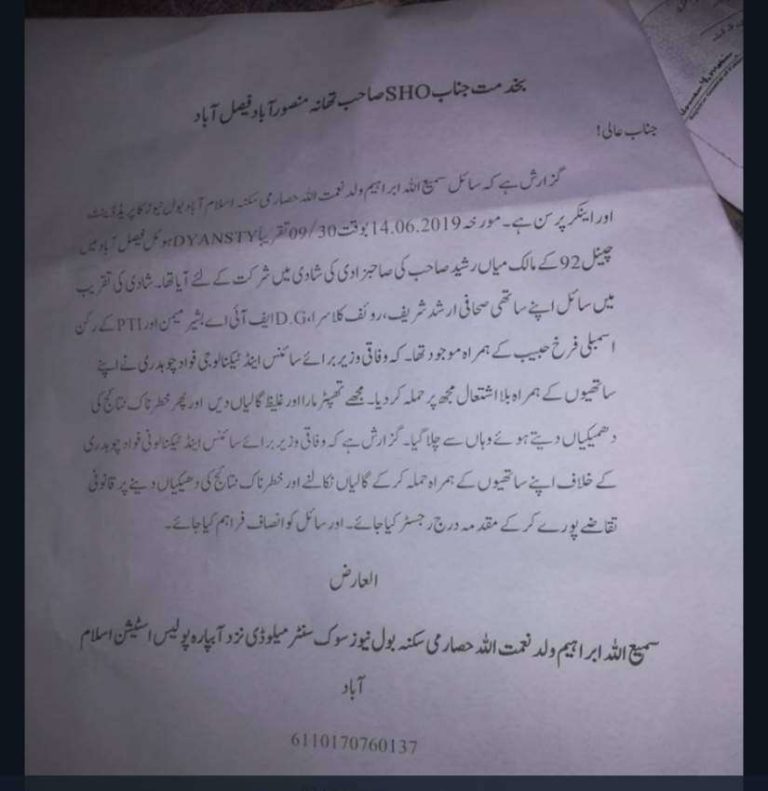 بخدمت جناب SHO صاحب تھانہ منصور آباد فیصل آباد
جناب عالی!
گزارش ہے کہ سائل سمیع اللہ ابراہیم ولد نعمت اللہ حصارمی سکنہ اسلام آباد بول نیوز کا پریذڈینٹ
اور اینکر پرسن ہے۔ مورخہ 14.06.2019 بوقت 09/30 تقریباً DYANSTY ہوٹل فیصل آباد میں
چینل 92 کے مالک میاں رشید صاحب کی صاحبزادی کی شادی میں شرکت کے لئے آیا تھا۔ شادی کی تقریب
میں سائل اپنے ساتھی صحافی ارشد شریف، روئف کلاسرا، D.G ایف آئی اے بشیر میمن اور PTI کے رکن
اسمبلی فرخ حبیب کے ہمراہ موجود تھا۔ کہ وفاقی وزیر برائے سائنس اینڈ ٹیکنالوجی فواد چوہدری نے اپنے
ساتھیوں کے ہمراہ بلا اشتعال مجھ پر حملہ کر دیا۔ مجھے تھپڑ مارا اور غلیظ گالیاں دیں اور پھر خطرناک نتائج کی
دھمیکیاں دیتے ہوئے وہاں سے چلا گیا۔ گزارش ہے کہ وفاقی وزیر برائے سائنس اینڈ ٹیکنالونی فواد چوہدری
کے خلاف اپنے ساتھیوں کے ہمراہ حملہ کر کے گالیاں نکالنے اور خطرناک نتائج کی دھیکیاں دینے پر قانونی
تقاضے پورے کر کے مقدمہ درج رجسٹر کیا جائے۔ اور سائل کو انصاف فراہم کیا جائے۔
العارض
سمیع اللہ ابراہیم ولد نعمت اللہ حصارمی سکنہ بول نیوز سوک سنٹر میلوڈی نزد آبپارہ پولیس اسٹیشن اسلام
آباد
6110170760137